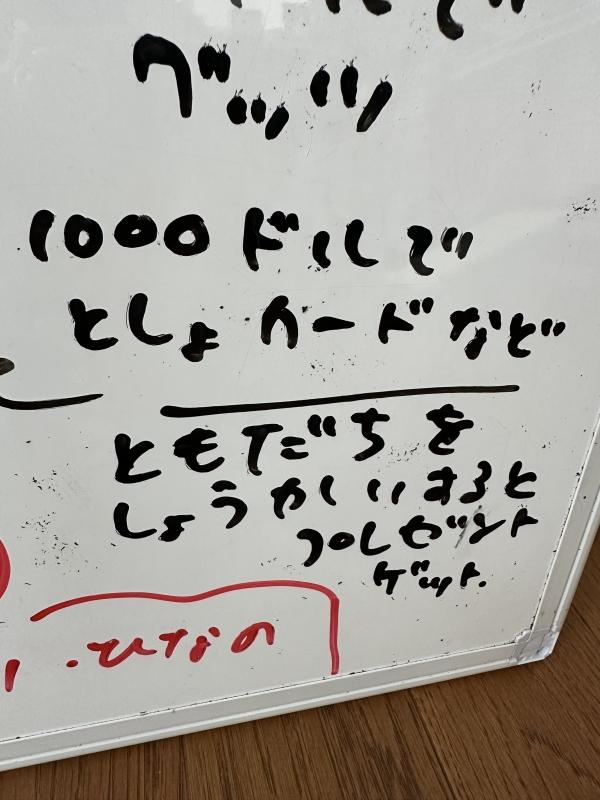 グッツ
1000ドルで
としょカードなど
ともだちを
しょうかいすると
プレゼント
ゲット.
・ひなの